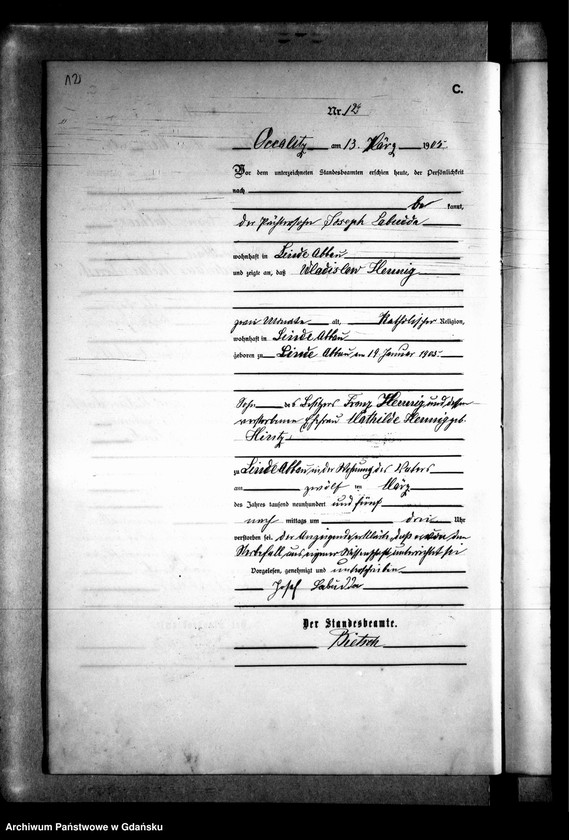 12
C.
Nr. 12
Occalitz am 13. März 1905.
Vor dem unterzeichneten Standesbeamten erschien heute, der Persönlichkeit
nach
be kannt,
der Joseph Labudda
wohnhaft in Linde Abbau
und zeigte an, daß Wladislaw Hennig
zwei Monate alt, Katholischer Religion,
wohnhaft in Linde Abbau
geboren zu Linde Abbau, am 19. Januar 1905
Sohn des Besitzers Franz Hennig und dessen
verstorbene Ehefrau Mathilde Hennig geb.
Hintz
zu Linde Abbau, in der Wohnung des Vaters
am zwölf ten März
des Jahres tausend neunhundert und fünf
nach mittags um drei Uhr
verstorben sei. Der Anzeigende erklärte, daß er von dem
Sterbefall aus eigener Wissenschaft unterrichtet sei
Vorgelesen, genehmigt und unterschrieben
Josef Labudda
Der Standesbeamte.
Archiwum Państwowe w Gdańsku